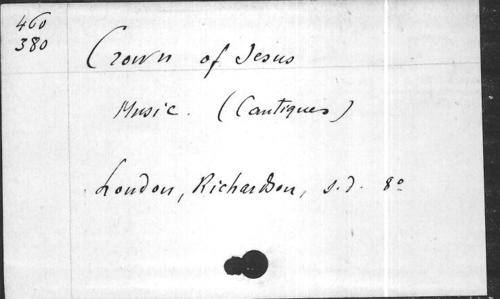 460
380
Crown of Jesus
Music. (Cantiques)
London, Richardson, s.d. 8°